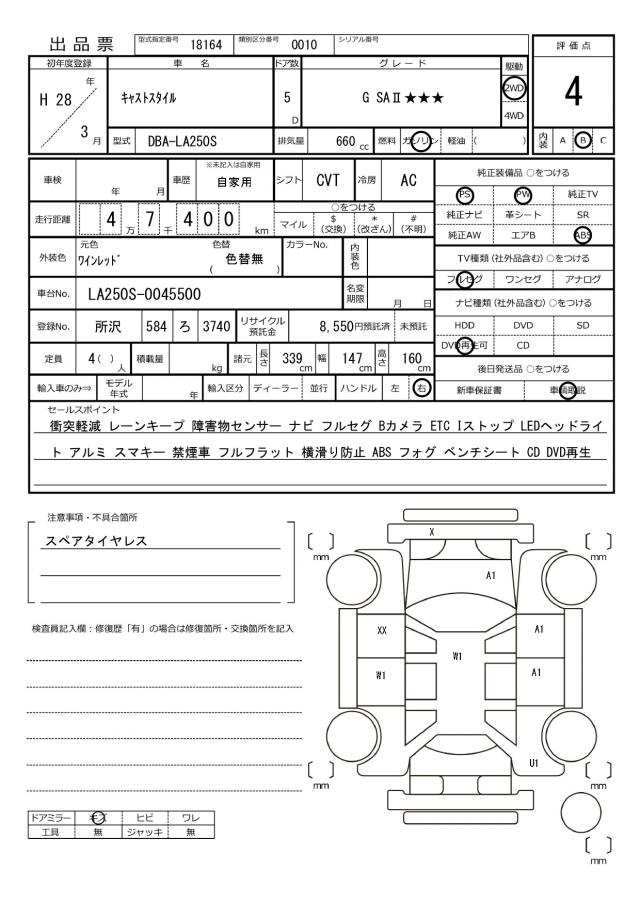 出品票 型式指定番号 18164 類別区分番号 0010 シリアル番号
評価点
4
内装 A B C
初年度登録 車名 ドア数 グレード 駆動
H 28 年 3 月 キャストスタイル 5 D G SAⅡ★★★ 2WD 4WD
型式 DBA-LA250S 排気量 660 cc 燃料 ガソリン 軽油 ( )
車検 年 月 車歴 ※未記入は自家用 自家用 シフト CVT 冷房 AC
走行距離 4 万 7 千 4 0 0 km ○をつける
マイル $ (交換) * (改ざん) # (不明)
外装色 元色 ワインレッド 色替 ( 色替無 ) カラーNo. 内装色
車台No. LA250S-0045500 名変期限 月 日
登録No. 所沢 584 ろ 3740 リサイクル預託金 8,550円預託済 未預託
定員 4( )人 積載量 kg 諸元 長さ 339cm 幅 147cm 高さ 160cm
輸入車のみ⇒ モデル年式 年 輸入区分 ディーラー 並行 ハンドル 左 右
純正装備品 ○をつける
PS PW 純正TV
純正ナビ 革シート SR
純正AW エアB ABS
TV種類(社外品含む)○をつける
フルセグ ワンセグ アナログ
ナビ種類(社外品含む)○をつける
HDD DVD SD
DVD再生可 CD
後日発送品 ○をつける
新車保証書 車輌取説
セールスポイント
衝突軽減 レーンキープ 障害物センサー ナビ フルセグ Bカメラ ETC Iストップ LEDヘッドライ
ト アルミ スマキー 禁煙車 フルフラット 横滑り防止 ABS フォグ ベンチシート CD DVD再生
注意事項・不具合箇所
スペアタイヤレス
検査員記入欄:修復歴「有」の場合は修復箇所・交換箇所を記入
ドアミラー キズ ヒビ ワレ
工具 無 ジャッキ 無
X
〔 〕 mm
〔 〕 mm
A1
XX
A1
W1
W1
A1
U1
〔 〕 mm
〔 〕 mm
〔 〕 mm